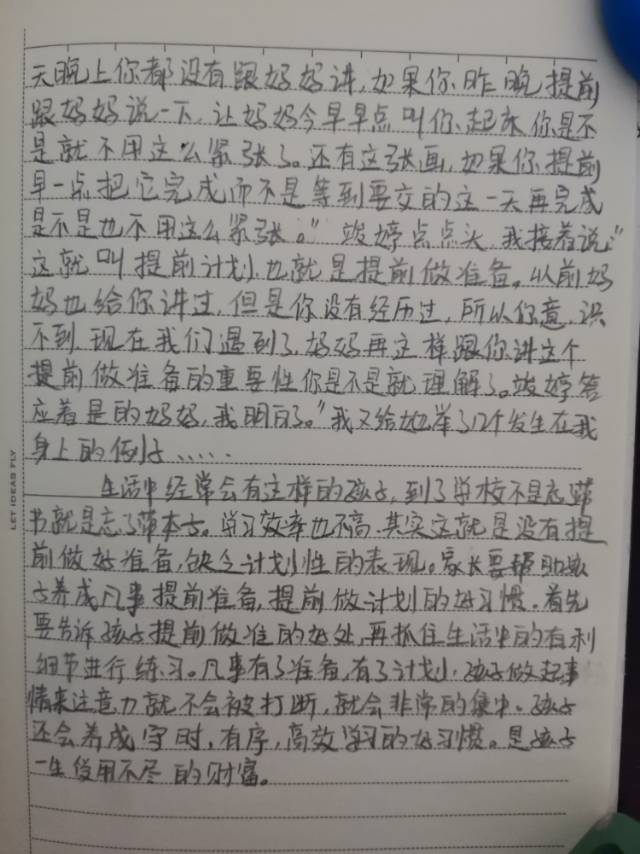 天晚上你都没有跟妈妈讲,如果你昨晚提前
跟妈妈说一下,让妈妈今早早点叫你起床你是不
是就不用这么紧张了。还有这张画,如果你提前
早一点把它完成而不是等到要交的这一天再完成
是不是也不用这么紧张。”竣婷点点头,我接着说:“
这就叫提前计划也就是提前做准备。以前妈
妈也给你讲过,但是你没有经历过,所以你意识
不到现在我们遇到了妈妈再这样跟你讲这个
提前做准备的重要性你是不是就理解了。竣婷答
应着是的妈妈,我明白了。”我又给她举了几个发生在我
身上的例子......
生活中经常会有这样的孩子,到了学校不是忘带
书就是忘了带本子。学习效率也不高,其实这就是没有提
前做好准备,缺今计划性的表现。家长要帮助孩
子养成凡事提前准备,提前做计划的好习惯。首先
要告诉孩子提前做准的好处,再抓住生活中的有利
细节进行练习。凡事有了准备,有了计划,孩子做起事
情来注意力就不会被打断,就会非常的集中。孩子
还会养成守时,有序,高效学习的好习惯。是孩子
一生使用不尽的财富。
LET IDEAS FLY